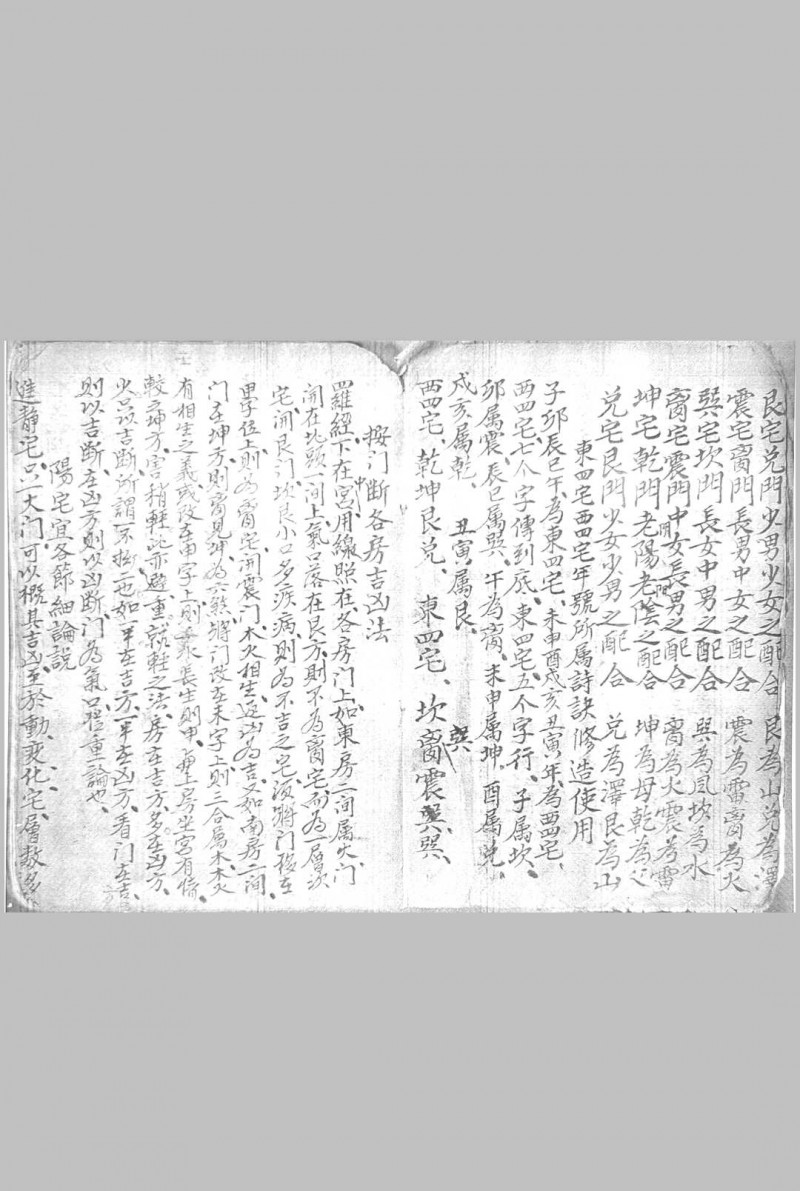 艮宅兌門少男少女之配合 艮為山兌為澤
震宅离門長男中女之配合 震為雷离為火
巽宅坎門長女中男之配合 巽為風坎為水
离宅震門中女長男之配合 离為火震為雷
坤宅乾門老陽老陰之配合 坤為母乾為父
兌宅艮門少女少男之配合 兌為澤艮為山
東四宅西四宅年號所属詩訣修造使用
子卯辰巳午為東四宅、未申酉戌亥丑寅年為西四宅、
西四宅七个字傳到底、東四宅五个字行、子属坎、
卯属震、辰巳属巽、午為离、未申属坤、酉属兌、
戌亥属乾、丑寅属艮、
西四宅、乾坤艮兌、東四宅、坎离震巽、
按门断各房吉凶法
羅經下在宮中用線照在各房门上如東房二间属火门
開在北頭一间上氣口落在艮方則不為离宅而為一層次
宅、開艮门、坎艮小口多疾病、則為不吉之宅、須將门移在
甲字位上則為离宅、開震门、木火相生、返凶為吉、又如南房二间、
门在坤方、則离見坤為六煞將门改在未字上則三合属木、木火
有相生之義或改在申字上則長生則申、上房坐宮有條、
較坤方、害稍軽此亦避重就軽之法、房在吉方多在凶方、
少只以吉断所謂一不拗二也如一半在吉方一半在凶方、看门在吉、
則以吉断、在凶方則以凶断、门為氣口、從重一論也、
陽宅宜各節細論説
進静宅、只一大门、可以概其吉凶、至於動变化宅、層数多